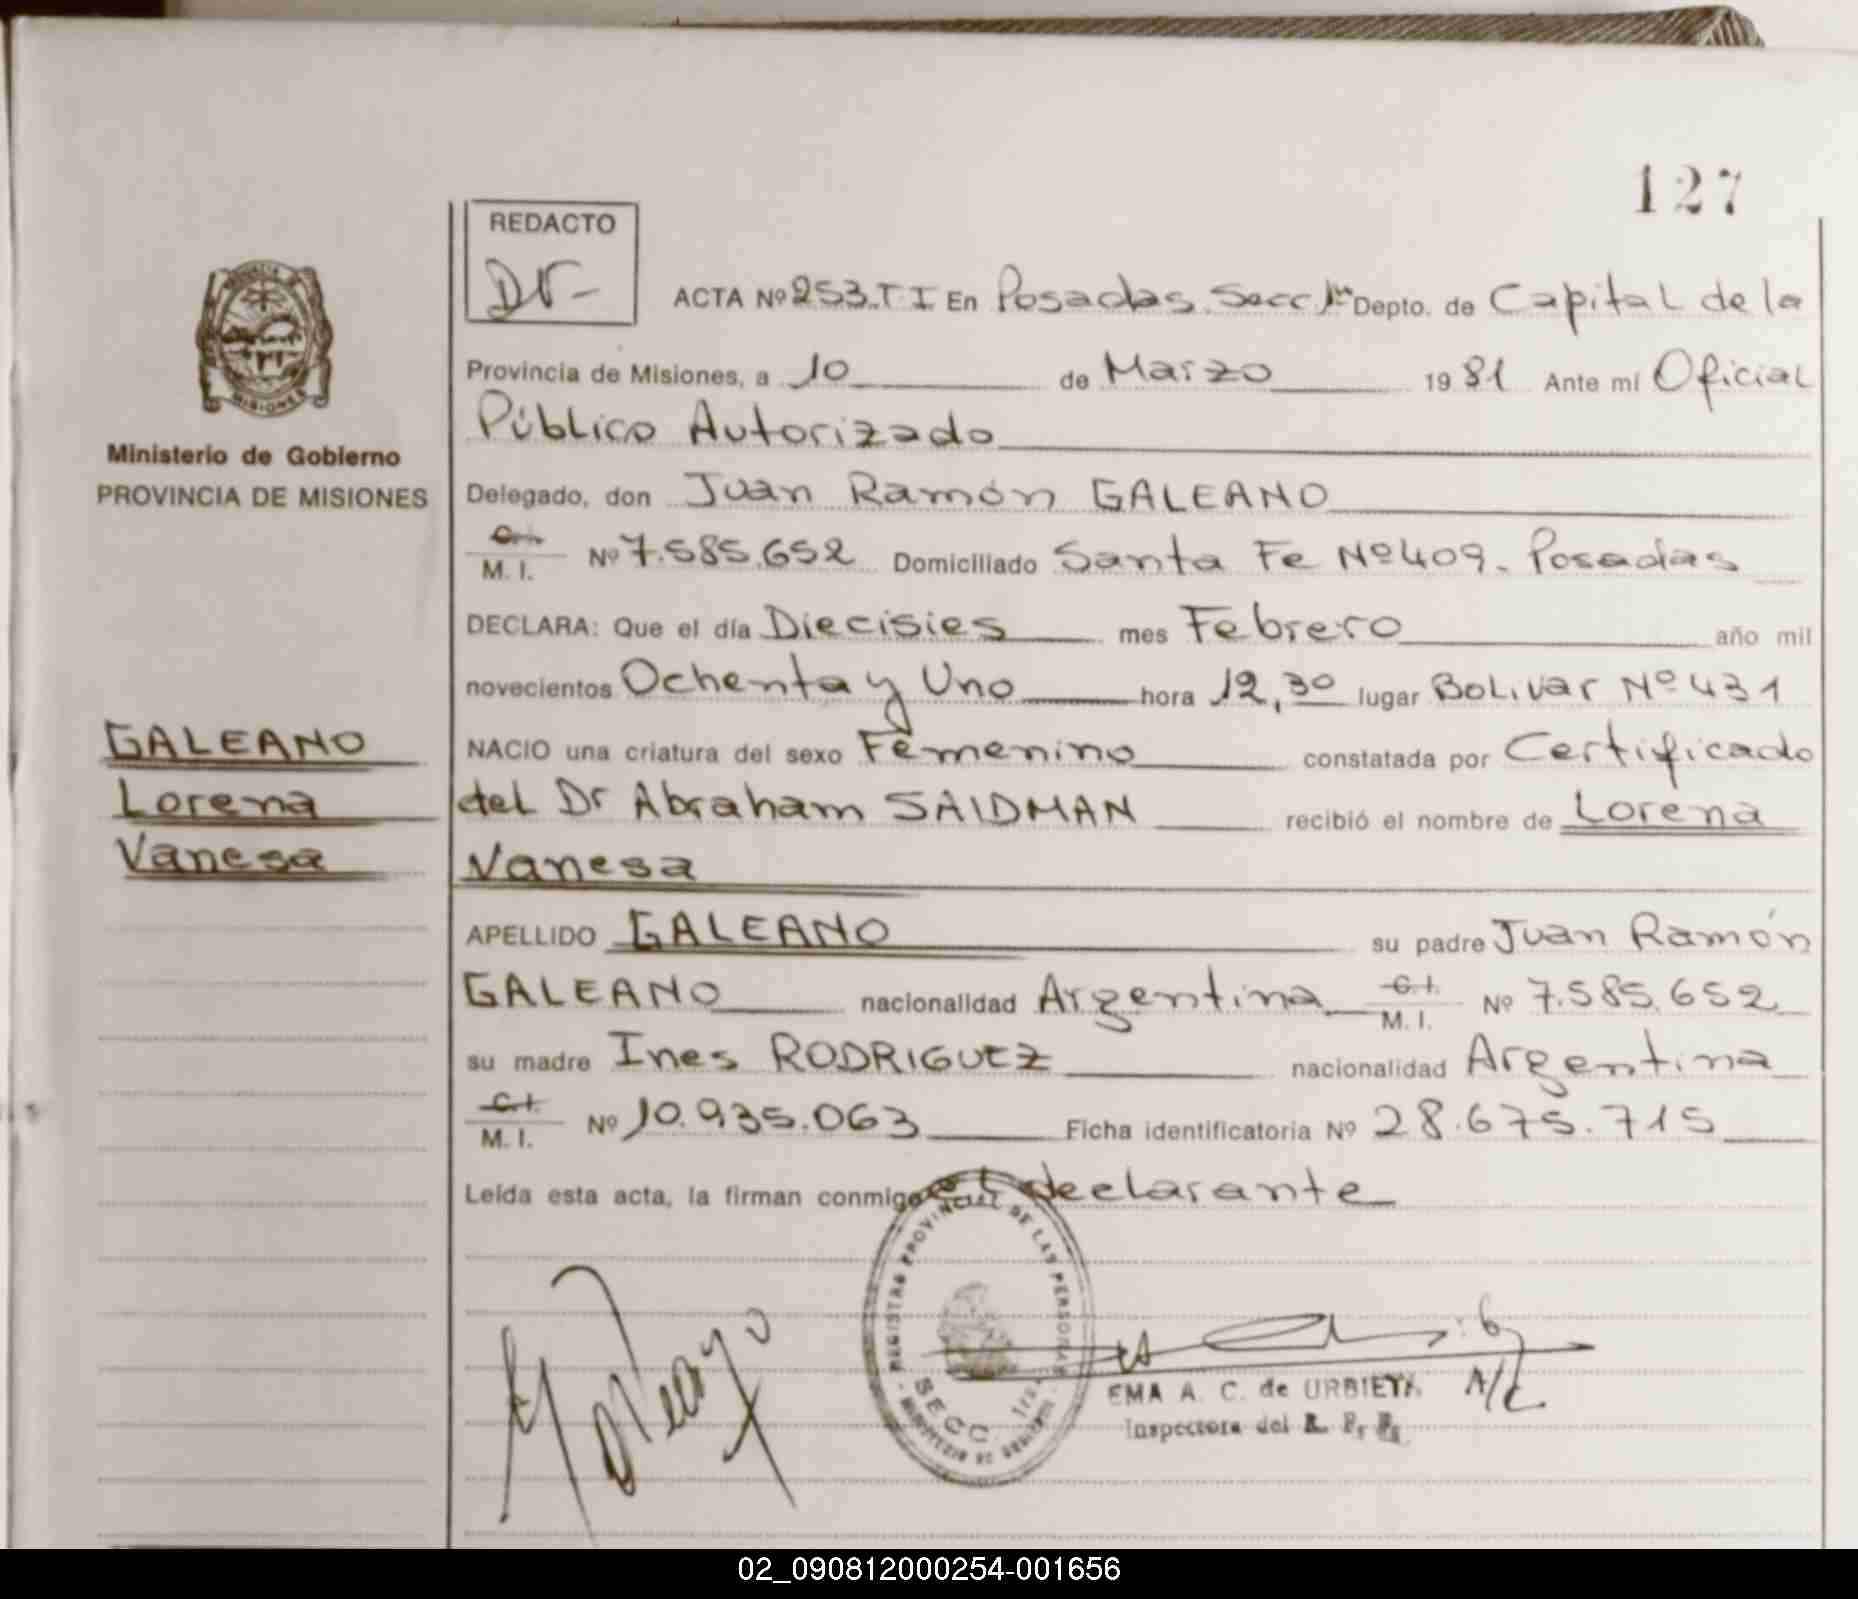 127
REDACTO
ACTA Nº 253.T I En Posadas. Secc 1ra Depto. de Capital de la
Provincia de Misiones, a 10 de Marzo 1981 Ante mi Oficial
Público Autorizado
MISIONES
Ministerio de Gobierno
PROVINCIA DE MISIONES
Delegado, don Juan Ramón GALEANO
C.I.
M. I. Nº 7.585.652 Domiciliado Santa Fe Nº 409. Posadas
DECLARA: Que el día Diecisies mes Febrero año mil
novecientos Ochenta y Uno hora 12,30 lugar Bolivar Nº 431
GALEANO
Lorena
Vanesa
NACIO una criatura del sexo Femenino constatada por Certificado
del Dr Abraham SAIDMAN recibió el nombre de Lorena
Vanesa
APELLIDO GALEANO su padre Juan Ramón
GALEANO nacionalidad Argentina C.I. M. I. Nº 7.585.652
su madre Ines RODRIGUEZ nacionalidad Argentina
C.I.
M. I. Nº 10.935.063 Ficha identificatoria Nº 28.675.715
Leída esta acta, la firman conmigo el declarante
REGISTRO PROVINCIAL DE LAS PERSONAS
SECC. 1ra.
MINISTERIO DE GOBIERNO
EMA A. C. de URBIETA A/C
Inspectora del R. P. P.
02_090812000254-001656